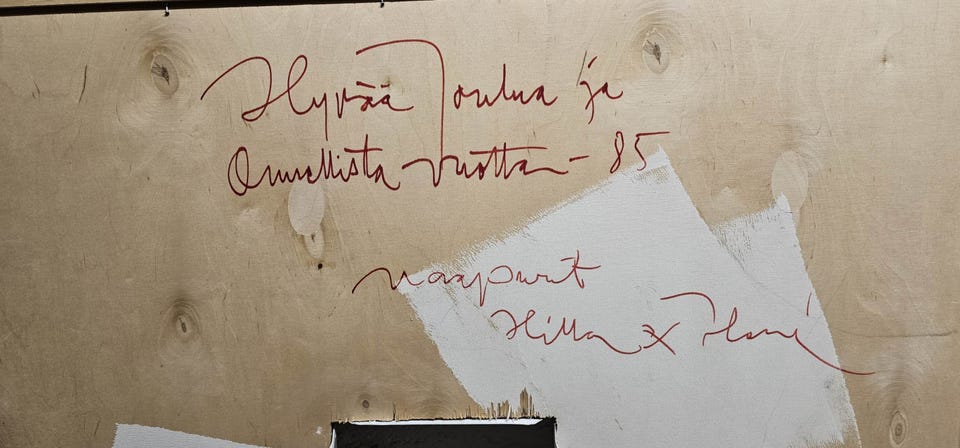 Hyvää Joulua ja
Onnellista vuotta - 85
naapurit
Hilla X